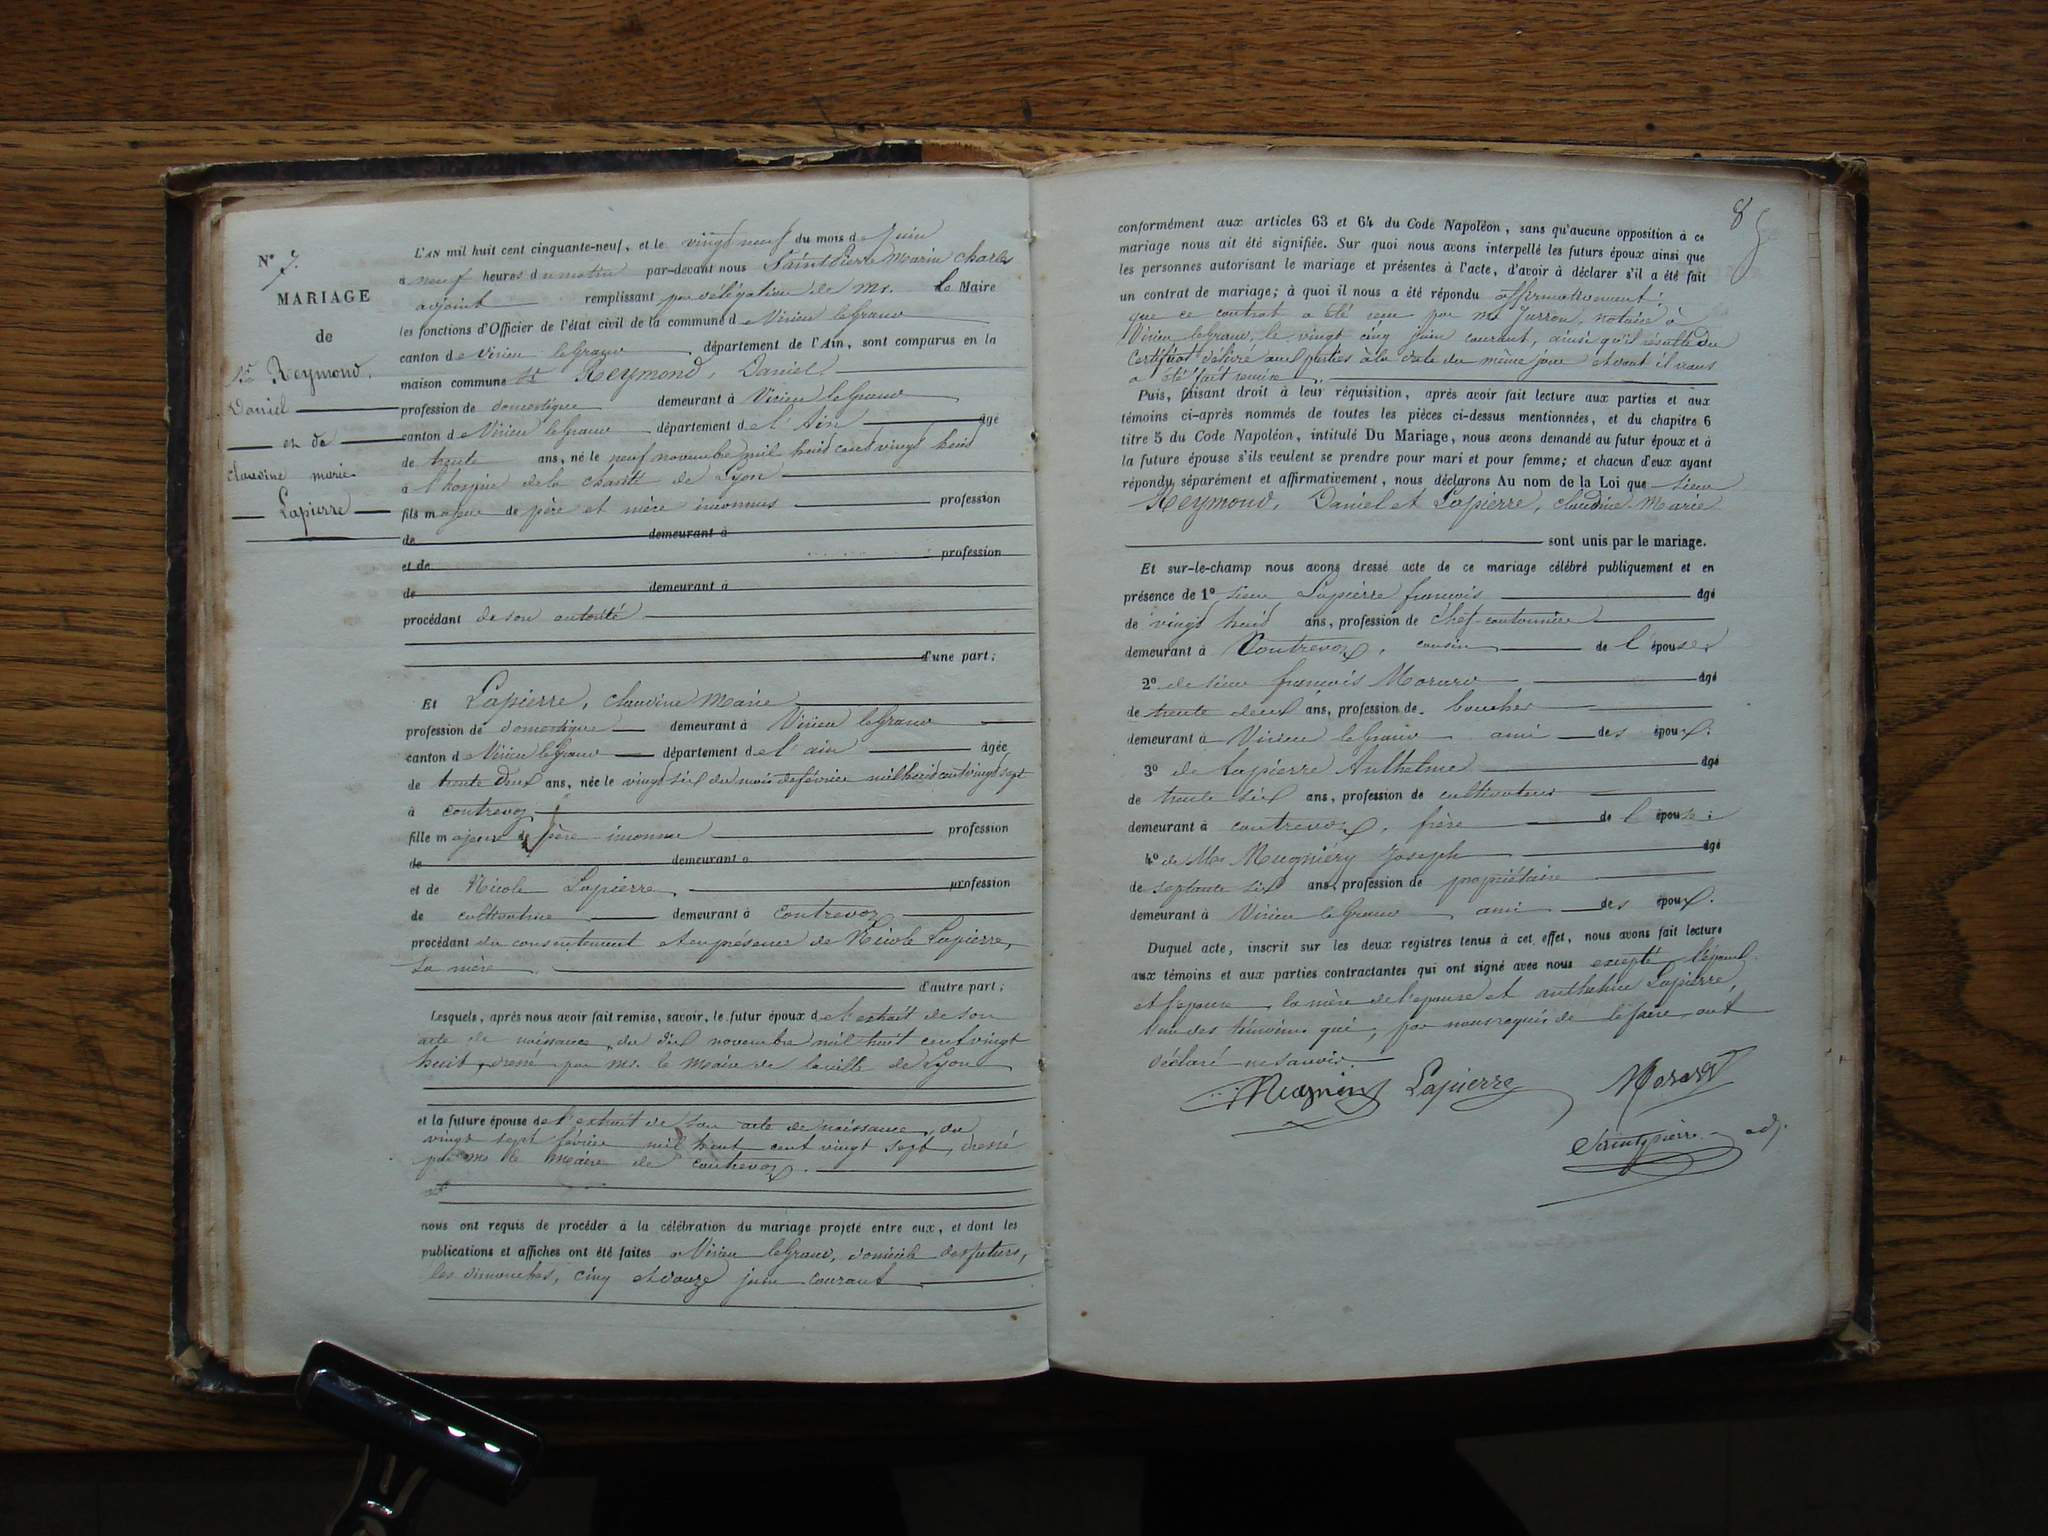 N° 7.
MARIAGE
de
Sr Reymond,
Daniel
et de
Claudine marie
Lapierre
L'AN mil huit cent cinquante-neuf, et le vingt neuf du mois de Juin
à neuf heures du matin par-devant nous Saintpierre Marin Charles
adjoint remplissant par délégation de Mr. Le Maire
les fonctions d'Officier de l'état civil de la commune de Virieu legrand
canton de Virieu legrand, département de l'Ain, sont comparus en la
maison commune Sr Reymond, Daniel
profession de domestique demeurant à Virieu legrand
canton de Virieu legrand département de l'Ain âgé
de trente ans, né le neuf novembre mil huit cent vingt huit
à l'hospice de la charité de Lyon
fils majeur de père et mère inconnus profession
de demeurant à
et de profession
de demeurant à
procédant de son autorité
d'une part;
Et Lapierre, Claudine Marie
profession de domestique demeurant à Virieu legrand
canton de Virieu legrand département de l'ain âgée
de trente deux ans, née le vingt six du mois de février mil huit cent vingt sept
à contrevoz
fille majeure de père inconnu profession
de demeurant à
et de Nicole Lapierre, profession
de cultivatrice demeurant à Contrevoz
procédant du consentement et en présence de Nicole Lapierre,
sa mère
d'autre part;
Lesquels, après nous avoir fait remise, savoir, le futur époux de l'extrait de son
acte de naissance, du dix novembre mil huit cent vingt
huit, dressé par Mr. le Maire de la ville de Lyon
et la future épouse de l'extrait de son acte de naissance, du
vingt sept février mil huit cent vingt sept, dressé
par Mr le Maire de Contrevoz.
nous ont requis de procéder à la célébration du mariage projeté entre eux, et dont les
publications et affiches ont été faites à Virieu legrand, domicile des futurs,
les dimanches, cinq et douze juin courant
8
conformément aux articles 63 et 64 du Code Napoléon, sans qu'aucune opposition à ce
mariage nous ait été signifiée. Sur quoi nous avons interpellé les futurs époux ainsi que
les personnes autorisant le mariage et présentes à l'acte, d'avoir à déclarer s'il a été fait
un contrat de mariage; à quoi il nous a été répondu affirmativement;
que ce contrat a été reçu par Me Jurron, notaire à
Virieu legrand, le vingt cinq juin courant, ainsi qu'il résulte du
Certificat délivré aux parties à la date du même jour et dont il nous
a été fait remise
Puis, faisant droit à leur réquisition, après avoir fait lecture aux parties et aux
témoins ci-après nommés de toutes les pièces ci-dessus mentionnées, et du chapitre 6
titre 5 du Code Napoléon, intitulé Du Mariage, nous avons demandé au futur époux et à
la future épouse s'ils veulent se prendre pour mari et pour femme; et chacun d'eux ayant
répondu séparément et affirmativement, nous déclarons Au nom de la Loi que sieur
Reymond, Daniel et Lapierre, Claudine Marie
sont unis par le mariage.
Et sur-le-champ nous avons dressé acte de ce mariage célébré publiquement et en
présence de 1° sieur Lapierre françois âgé
de vingt huit ans, profession de chef-cantonnier
demeurant à Contrevoz, cousin de l'épouse;
2° de sieur françois Morard âgé
de trente deux ans, profession de boucher
demeurant à Virieu legrand ami des époux.
3° de Lapierre Anthelme âgé
de trente six ans, profession de cultivateur
demeurant à contrevoz, frère de l'épouse;
4° de Mr Mugniéry Joseph âgé
de septante six ans, profession de propriétaire
demeurant à Virieu legrand ami des époux.
Duquel acte, inscrit sur les deux registres tenus à cet effet, nous avons fait lecture
aux témoins et aux parties contractantes qui ont signé avec nous excepté l'époux
et l'épouse, la mère de l'epouse et anthelme Lapierre,
l'un des témoins qui, par nous requis de le faire, ont
déclaré ne savoir.
Lapierre Morard
Saintpierre adj.